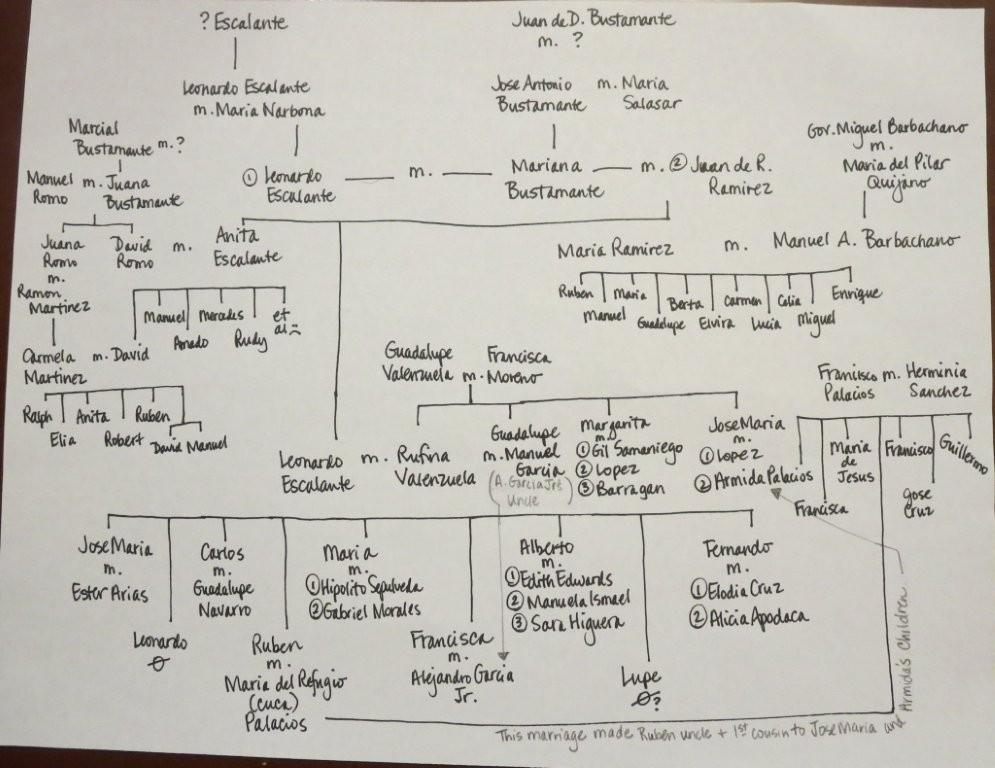 ? Escalante
Juan de D. Bustamante
m. ?
Leonardo Escalante
m. Maria Narbona
Jose Antonio m. Maria
Bustamante Salasar
Marcial
Bustamante m. ?
Gov. Miguel Barbachano
m.
Maria del Pilar
Quijano
Manuel m. Juana
Romo Bustamante
① Leonardo
Escalante
m.
Mariana
Bustamante
m. ② Juan de R.
Ramirez
Juana
Romo
m.
Ramon
Martinez
David
Romo
m.
Anita
Escalante
Maria Ramirez m. Manuel A. Barbachano
Ruben
Manuel
Maria
Guadalupe
Berta
Elvira
Carmen
Lucia
Celia
Miguel
Enrique
Carmela m. David
Martinez
Manuel
Amado
Mercedes
Rudy
et
al
Ralph
Elia
Anita
Robert
Ruben
David Manuel
Guadalupe Francisca
Valenzuela m. Moreno
Francisco m. Herminia
Palacios Sanchez
Leonardo m. Rufina
Escalante Valenzuela
Guadalupe
m. Manuel
Garcia
(A. Garcia Jr's
Uncle)
Margarita
m.
① Gil Samaniego
② Lopez
③ Barragan
Jose Maria
m.
① Lopez
② Armida Palacios
Francisca
Maria
de
Jesus
Francisco
Jose
Cruz
Guillermo
Jose Maria
m.
Ester Arias
Leonardo
Carlos
m.
Guadalupe
Navarro
Ruben
m.
Maria del Refugio
(Cuca)
Palacios
Maria
m.
① Hipolito Sepulveda
② Gabriel Morales
Francisca
m.
Alejandro Garcia
Jr.
Alberto
m.
① Edith Edwards
② Manuela Ismael
③ Sara Higuera
Lupe
?
Fernando
m.
① Elodia Cruz
② Alicia Apodaca
This marriage made Ruben uncle + 1st cousin to Jose Maria and
Armida's Children.